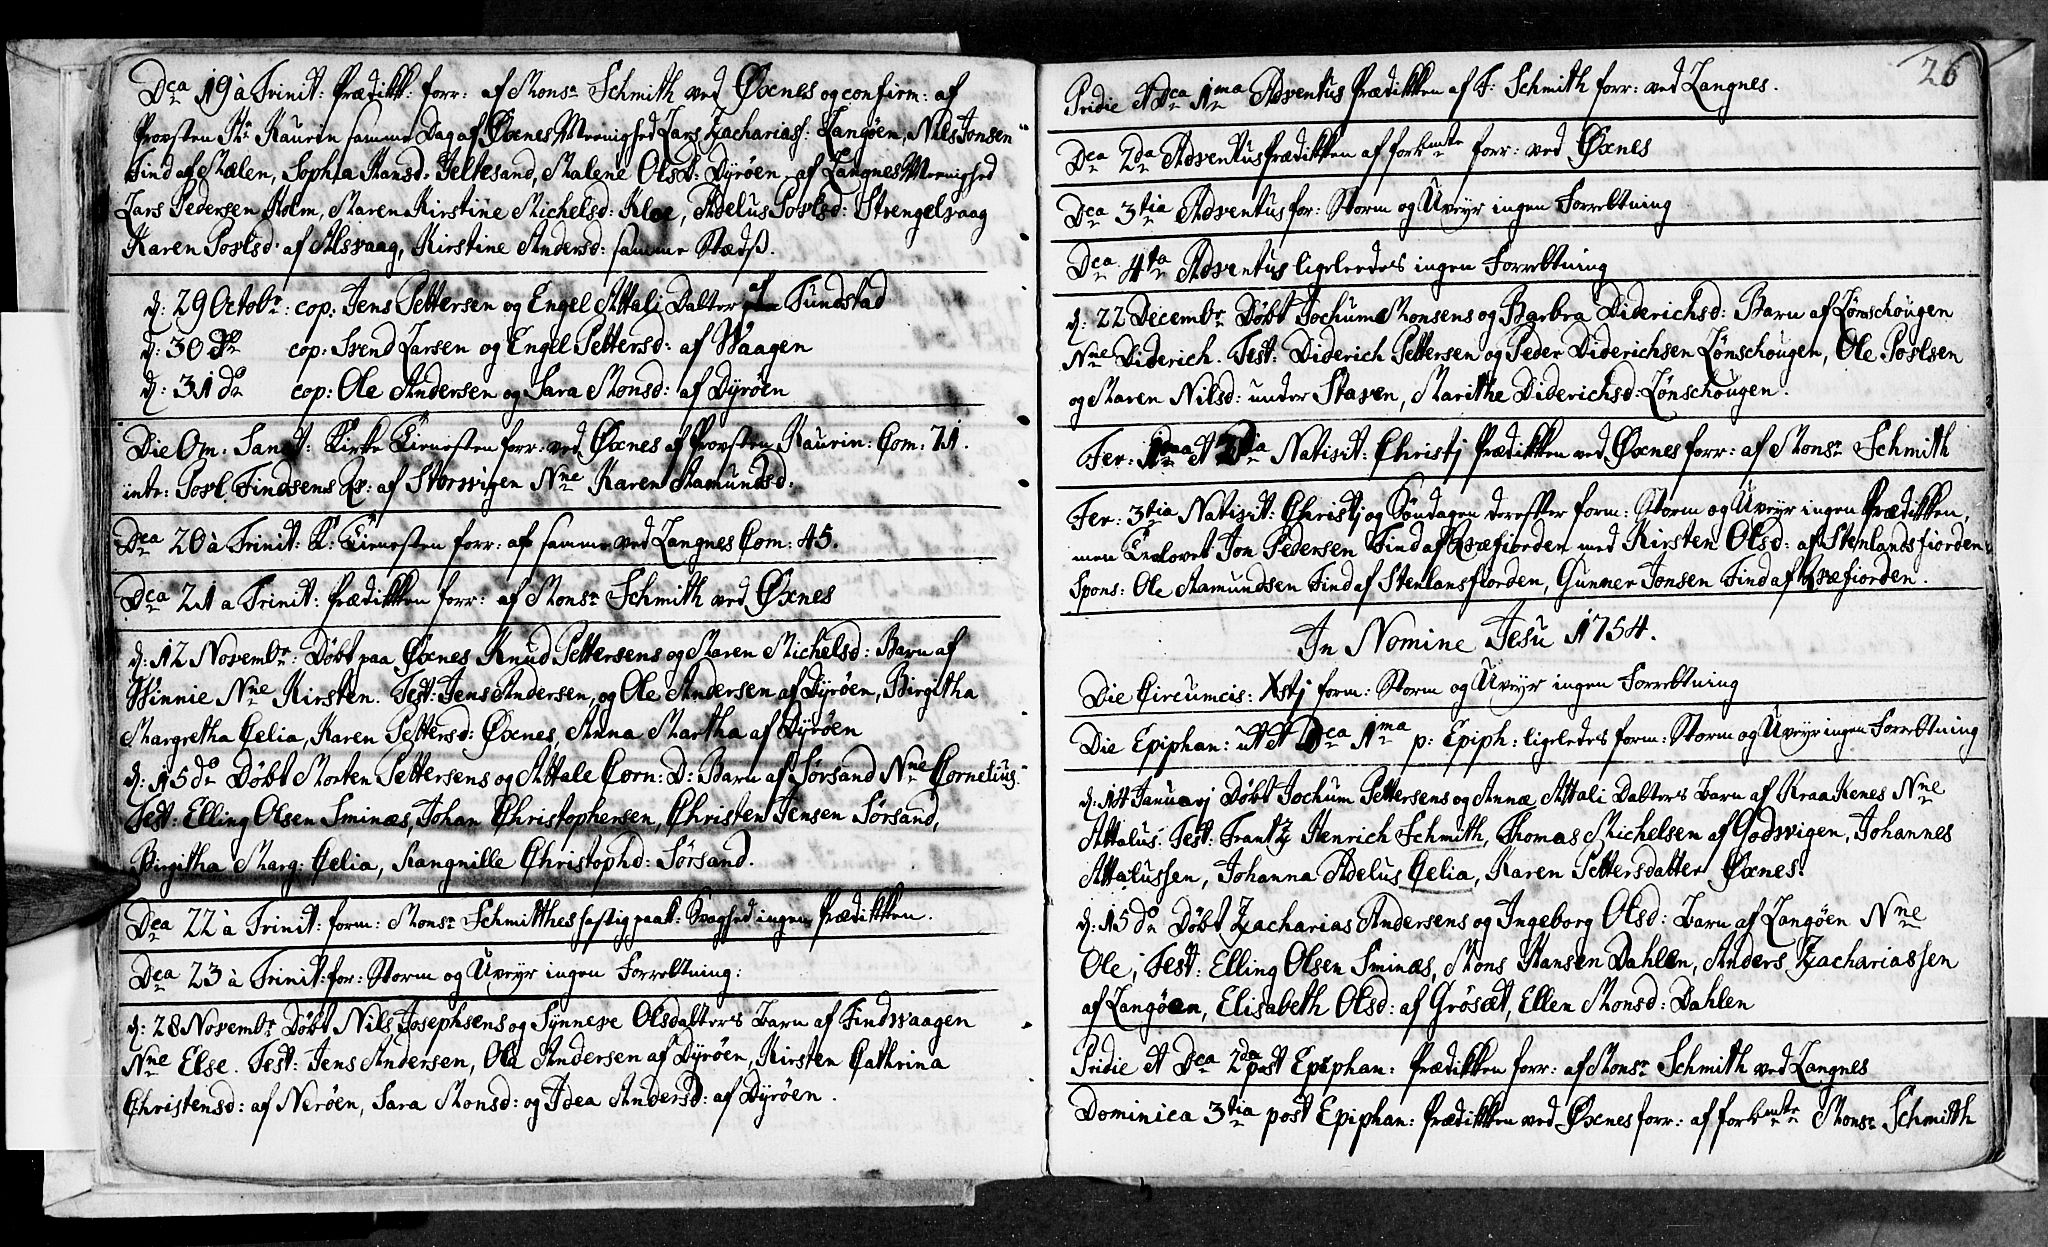 Dca 19 à Trinit: Prædikk: forr: af Monsr Schmith ved Øxnes og confirm: af
Provsten Hr Kaurin samme Dag af Øxnes Meenighed Lars Zachariass: Langøen, Nils Jonsen
Find af Mælen, Sophia Hansd: Jeltesand, Malene Olsd: Dyrøen, af Langnes Meenighed
Lars Pedersen Holm, Maren Kirstine Michelsd: Kloe, Adelus Povlsd: Strengelvaag
Karen Povlsd: af Alsvaag, Kirstine Andersd: samme Stæds.
d: 29 Octobr: cop: Jens Pettersen og Engel Attali Datter af Tundstad
d: 30 do cop: Svend Larsen og Engel Pettersd: af Waagen
d: 31 do cop: Ole Andersen og Sara Monsd: af Dyrøen
Die Om: Sanct: Kirke Tienesten forr: ved Øxnes af Provsten Kaurin: Com: 71.
intr: Povl Findsens Qv: af Størvigen Nne Karen Hamundsd.
Dca 20 à Trinit: K: Tienesten forr: af samme ved Langnes Com: 45.
Dca 21 a Trinit: Prædikken forr: af Monsr Schmith ved Øxnes
d: 12 Novembr: Døbt paa Øxnes Knud Pettersens og Maren Michelsd: Barn af
Winnie Nne Kirsten. Test: Jens Andersen, og Ole Andersen af Dyrøen, Birgitha
Margretha Celia, Karen Pettersd: Øxnes, Anna Martha af Dyrøen
d: 15 do Døbt Morten Pettersens og Attale Corn: D: Barn af Sørsand Nne Cornelius.
Test: Elling Olsen Sminæs, Johan Christophersen, Christen Jensen Sørsand,
Birgitha Marg: Celia, Rangnille Christophd: Sørsand.
Dca 22 à Trinit: form: Monsr Schmitthes hastig paak: Svaghed ingen Prædikken.
Dca 23 à Trinit: for: Storm og Uveyr ingen Forretning:
d: 28 Novembr Døbt Nils Josephsens og Synneve Olsdatters Barn af Findvaagen
Nne Else. Test: Jens Andersen, Ole Andersen af Dyrøen, Kirsten Cathrina
Christensd: af Nerøen, Sara Monsd: og Idea Andersd: af Dyrøen.
26
Pridie et Dca 1ma Adventus Prædikken af F: Schmith forr: ved Langnes.
Dca 2da Adventus Prædikken af forbmte forr: ved Øxnes
Dca 3tia Adventus for: Storm og Uveyr ingen Forretning
Dca 4ta Adventus ligeleedes ingen Forretning
d: 22 Decembr Døbt Jochum Monsens og Barbra Diderichsd: Barn af Lønschougen
Nne Diderich. Test: Diderich Pettersen og Peder Diderichsen Lønschougen, Ole Povlsen
og Maren Nilsd: under Staven, Marithe Diderichsd: Lønschougen.
Fer: 1ma et 2da Nativit: Christj Prædikken ved Øxnes forr: af Monsr Schmith
Fer: 3tia Nativit: Christj og Søndagen derefter form: Storm og Uveyr ingen Prædikken,
men Trolovet Jon Pedersen Find af Qvæfiorden med Kirsten Olsd: af Stenlandsfiorden.
Spons: Ole Hamundsen Find af Stenlansfiorden, Gunner Jonsen Find af Qvæfiorden.
In Nomine Jesu 1754.
Die Circumcis: Xstj form: Storm og Uveyr ingen Forretning
Die Epiphan: ut et Dca 1ma p: Epiph: ligeledes form: Storm og Uveyr ingen Forretning
d: 14 Januarj Døbt Jochum Pettersens og Annæ Attali Datters Barn af Kraakenes Nne
Attalus. Test: Frantz Henrich Schmith, Thomas Michelsen af Godvigen, Johannes
Attalussen, Johanna Adelus Celia, Karen Pettersdatter Øxnes.
d: 15 do Døbt Zacharias Andersens og Ingeborg Olsd: Barn af Langøen Nne
Ole, Test: Elling Olsen Sminæs, Mons Hansen Dahlen, Anders Zachariassen
af Langøen, Elisabeth Olsd: af Grøsæt, Ellen Monsd: Dahlen
Pridie et Dca 2da post Epiphan: Prædikken forr: af Monsr Schmith ved Langnes
Dominica 3tia post Epiphan: Prædikken ved Øxnes forr: af forbmte Monsr Schmith